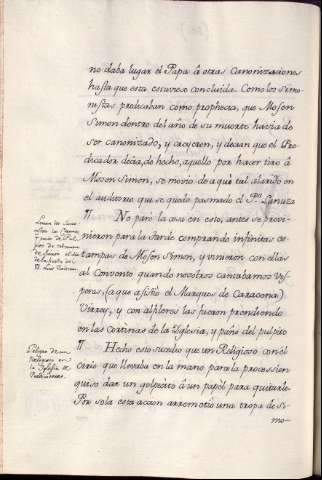 no daba lugar el Papa à otras Canonizaciones
hasta que esta estuviese concluida. Como los Simo-
nistas predicaban como prophecia, que Mosen
Simon dentro del año de su muerte havia de
ser canonizado, y creyeron, y decian que el Pre-
dicador decia, de hecho, aquello por hacer tiro à
Mosen Simon, se movio de aqui tal alarido en
el auditorio que se quedo pasmado el P.e Lanuza
¶ No paró la cosa en esto, antes se previ-
nieron para la tarde comprando infinitas es-
tampas de Mosen Simon, y vinieron con ellas
al Convento quando nosotros cantabamos Vis-
peras, (a que asistio el Marques de Caracena)
Virrey, y con alfileres las fueron prendiendo
en las Cortinas de la Iglesia, y paño del pulpito
¶ Hecho esto sucedio que un Religioso con el
cirio que llevaba en la mano para la procession
quiso dar un golpecito à un papel para quitarle
Por sola esta accion arremetió una tropa de Si-
mo-
de la fiesta de
Peligro de un
Religioso en
la Iglesia de
Predicadores.